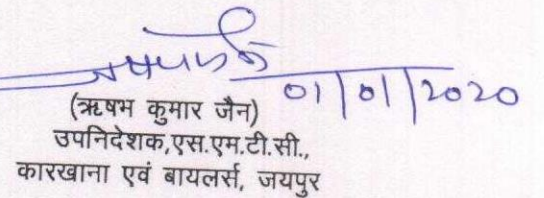 01/01/2020
(ऋषभ कुमार जैन)
उपनिदेशक,एस.एम.टी.सी.,
कारखाना एवं बायलर्स, जयपुर